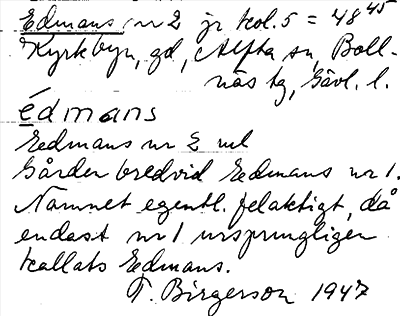 Edmans nr 2 jr kol. 5 = 48 45
Kyrkbyn, gd, Alfta sn, Boll-
näs tg, Gävl. l.
édmans
Eedmans nr 2 ul
Gården bredvid Eedmans nr 1.
Namnet egentl. felaktigt, då
endast nr 1 ursprungligen
kallats Eedmans.
T. Birgerson 1947